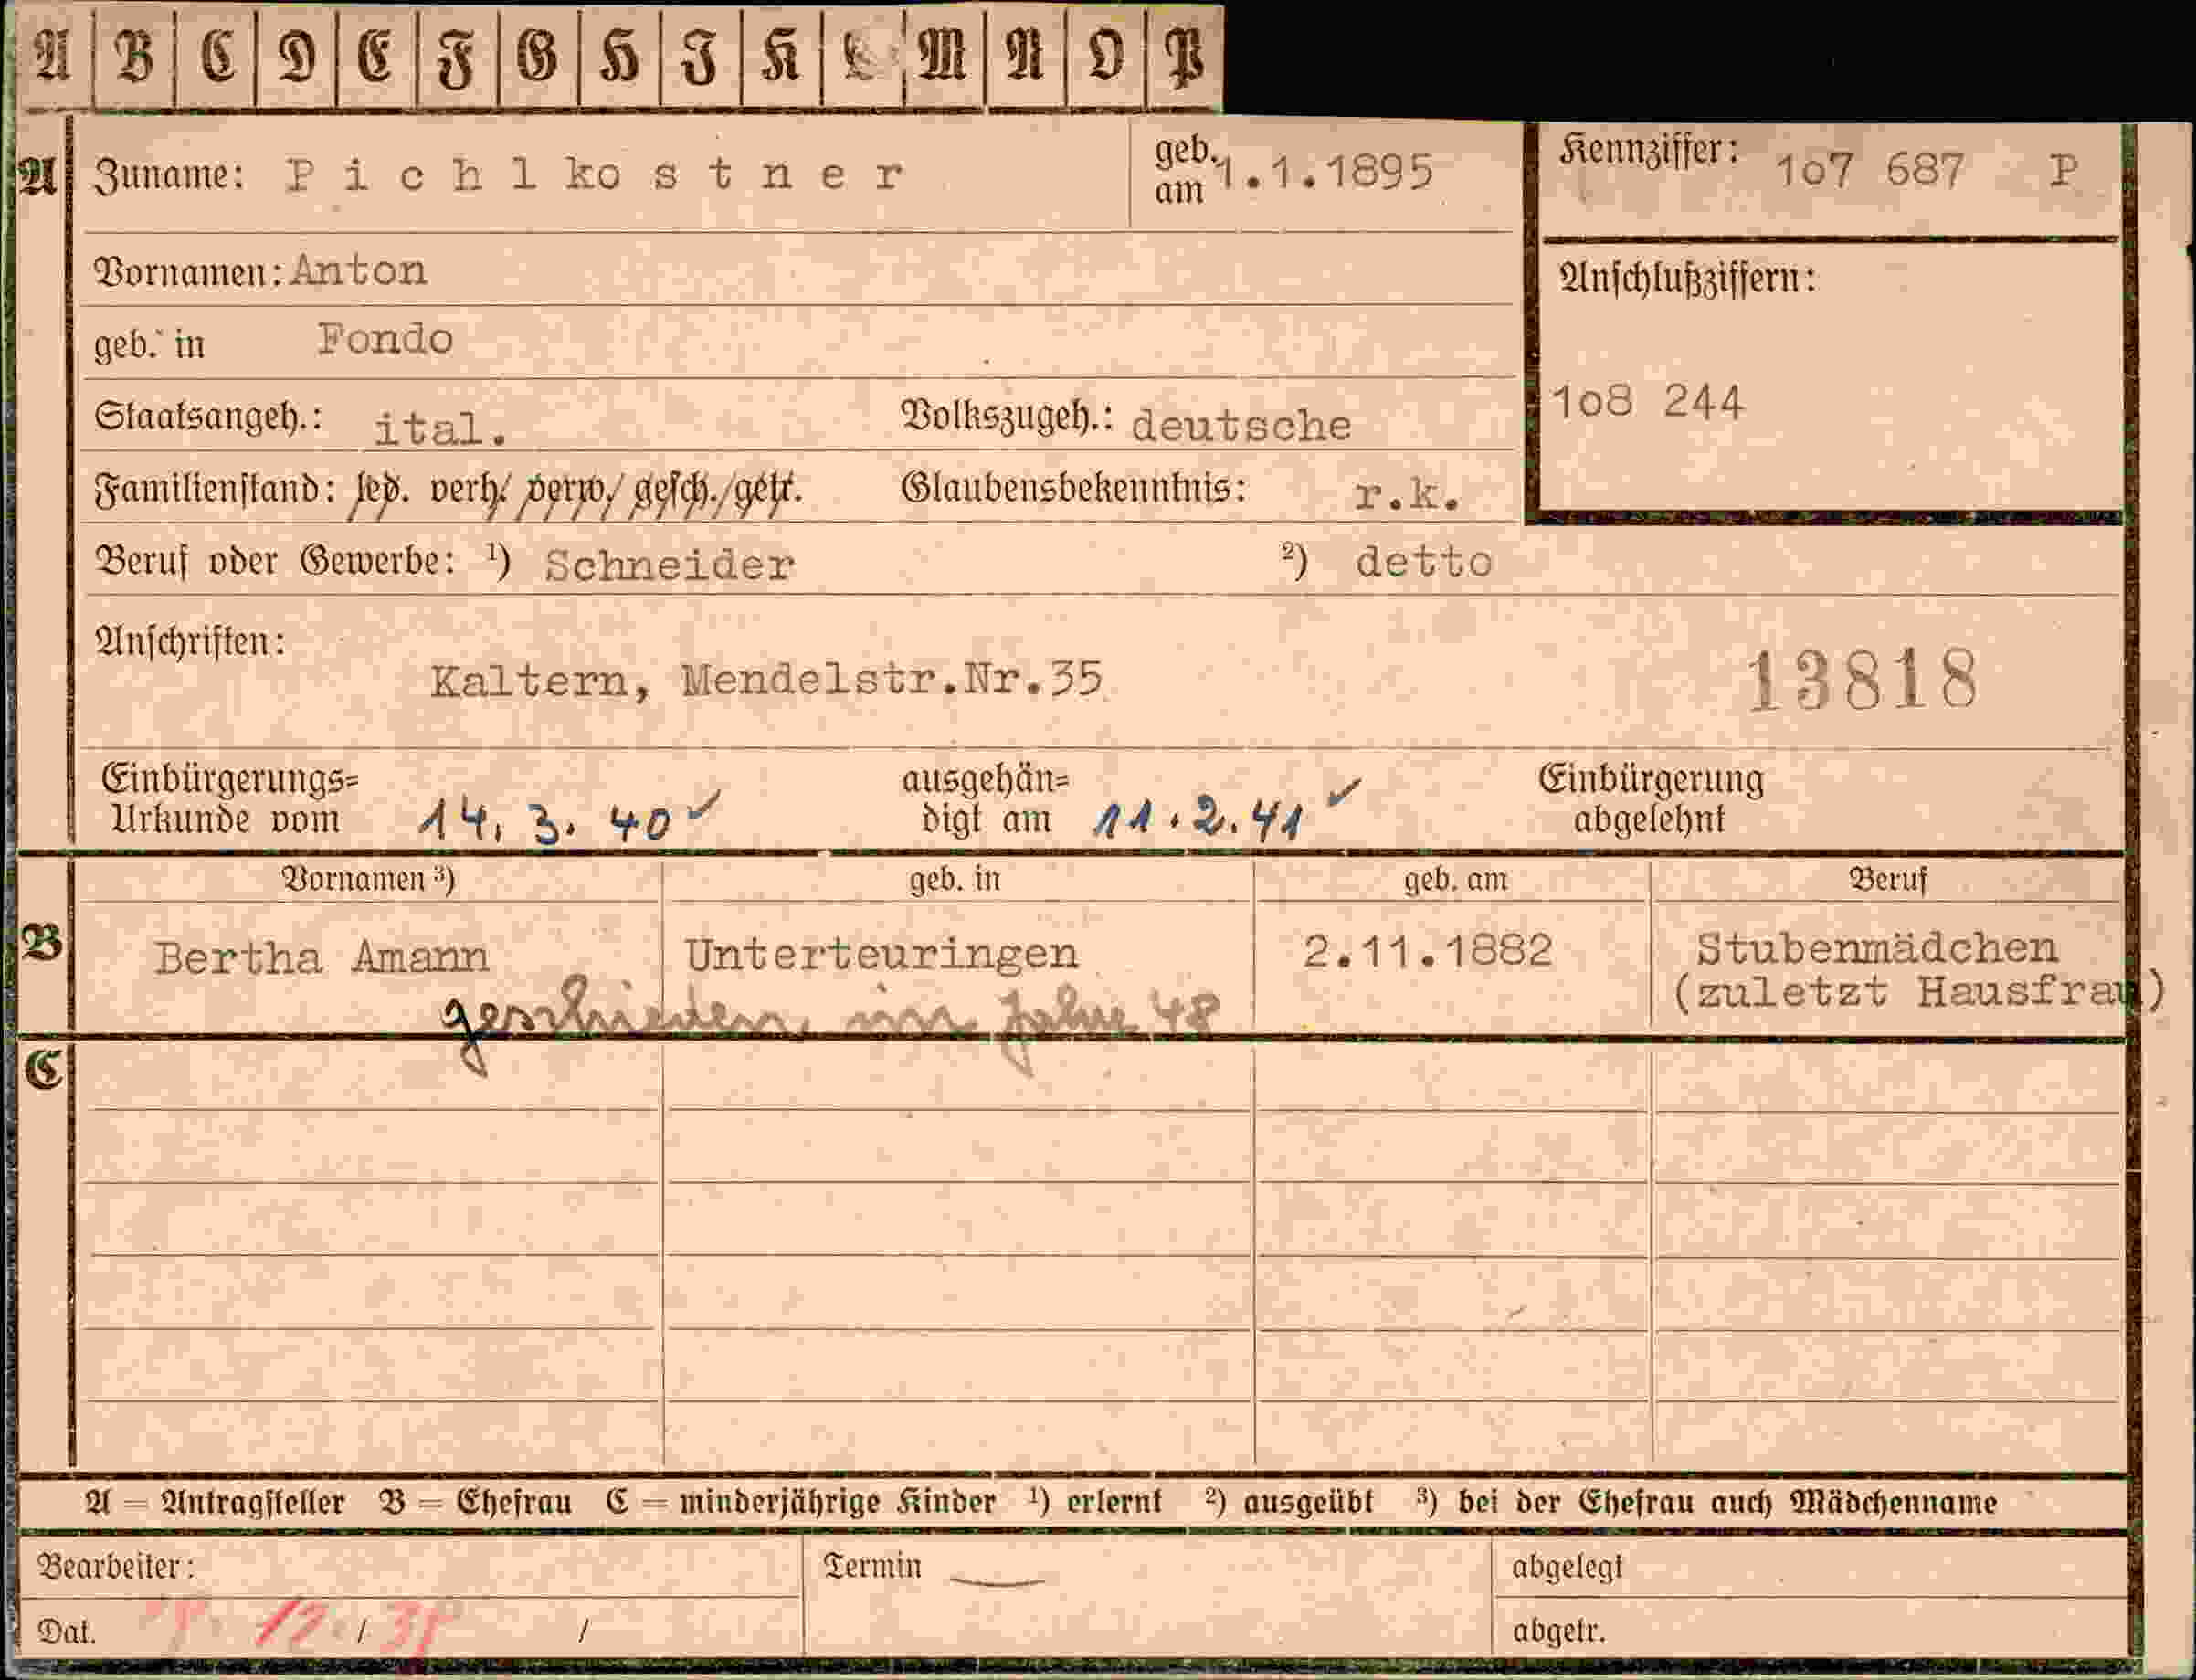 A B C D E F G H I K L M N O P
A Zuname: Pichlkostner geb. am 1.1.1895 Kennziffer: 1o7 687 P
Vornamen: Anton Anschlußziffern:
geb. in Fondo
Staatsangeh.: ital. Volkszugeh.: deutsche 1o8 244
Familienstand: led. verh. verw. gesch./getr. Glaubensbekenntnis: r.k.
Beruf oder Gewerbe: 1) Schneider 2) detto
Anschriften:
Kaltern, Mendelstr.Nr.35 13818
Einbürgerungs= ausgehän= Einbürgerung
Urkunde vom 14. 3. 40 digt am 11.2.41 abgelehnt
Vornamen 3) geb. in geb. am Beruf
B Bertha Amann Unterteuringen 2.11.1882 Stubenmädchen
(zuletzt Hausfrau)
geschieden im Jahre 48
C
A = Antragsteller B = Ehefrau C = minderjährige Kinder 1) erlernt 2) ausgeübt 3) bei der Ehefrau auch Mädchenname
Bearbeiter: Termin abgelegt
Dat. 12 / / abgetr.